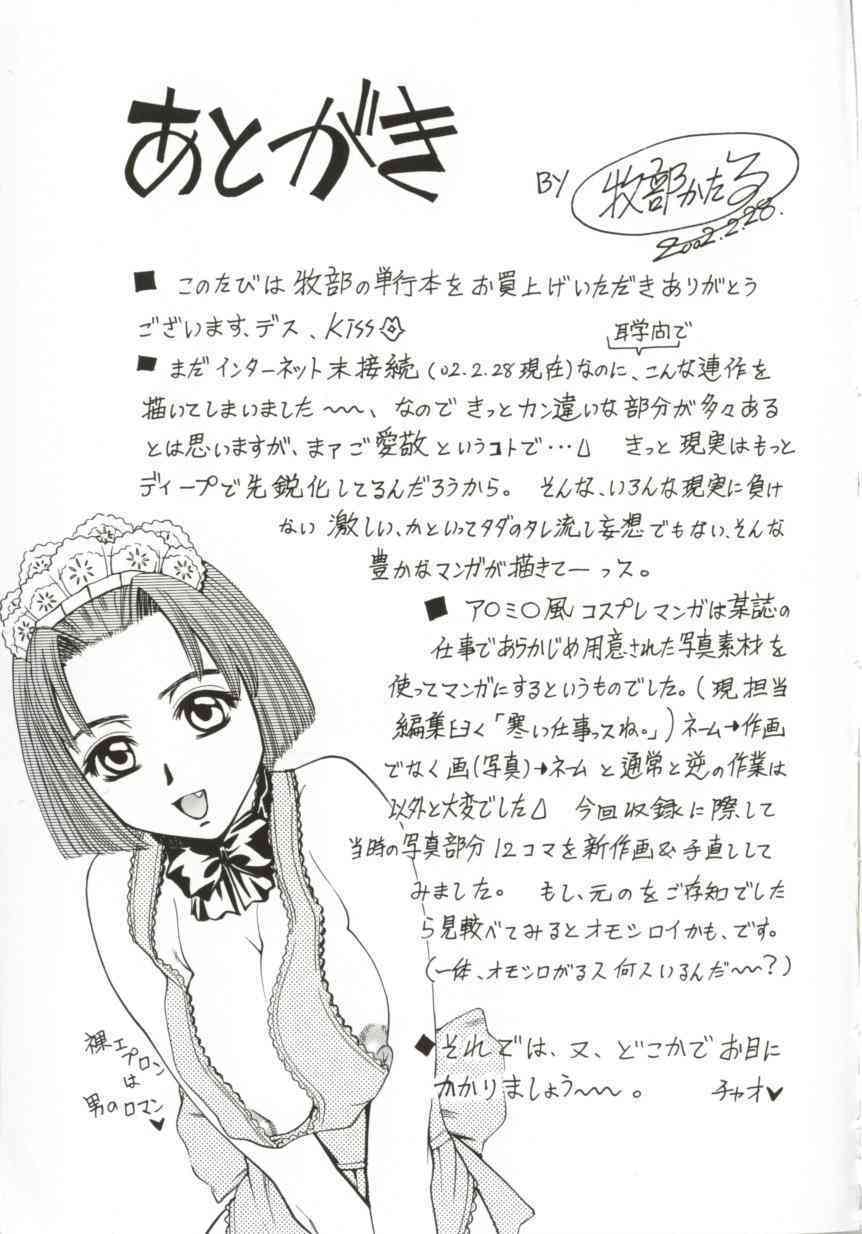 あとがき
BY 牧部かたる
2002.2.28.
■ このたびは牧部の単行本をお買上げいただきありがとう
ございます、デス、Kiss
耳学問で
■ まだインターネット未接続(02.2.28現在)なのに、こんな連作を
描いてしまいました〜〜、なのできっとカン違いな部分が多々ある
とは思いますが、まァご愛敬というコトで… きっと現実はもっと
ディープで先鋭化してるんだろうから。 そんな、いろんな現実に負け
ない激しい、かといってタダのタレ流し妄想でもない、そんな
豊かなマンガが描きてーっス。
■ ア○ミ○風コスプレマンガは某誌の
仕事であらかじめ用意された写真素材を
使ってマンガにするというものでした。(現担当
編集曰く「寒い仕事っスね。」)ネーム→作画
でなく画(写真)→ネームと通常と逆の作業は
以外と大変でした 今回収録に際して
当時の写真部分12コマを新作画&手直しして
みました。 もし、元のをご存知でした
ら見較べてみるとオモシロイかも、です。
(一体、オモシロがるス何スいるんだ〜〜?)
◆ それでは、又、どこかでお目に
かかりましょう〜〜。 チャオ♥
裸エプロン
は
男のロマン
♥